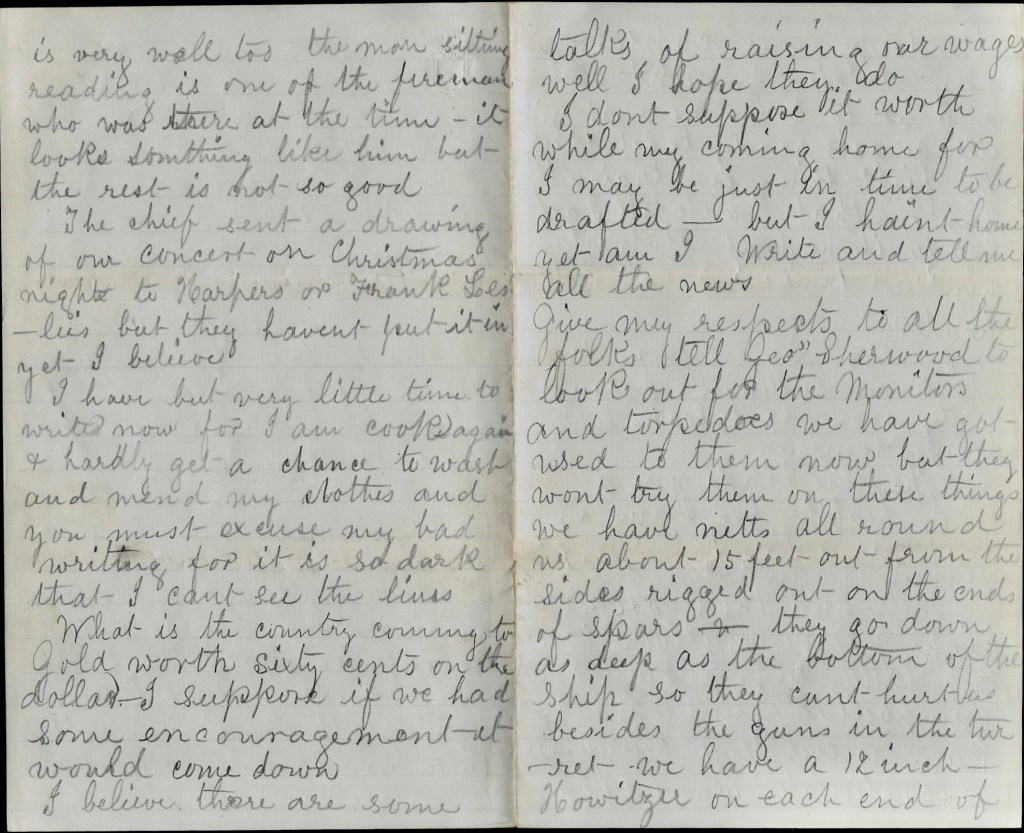 is very well too the man sitting
reading is one of the fireman
who was there at the time - it
looks somthing like him but
the rest is not so good
The chief sent a drawing
of our concert on Christmas
night to Harpers or Frank Les
-lies but they havent put it in
yet I believe
I have but very little time to
write now for I am cook again
& hardly get a chance to wash
and mend my clothes and
you must excuse my bad
writting for it is so dark
that I cant see the lines
What is the country coming to
Gold worth sixty cents on the
dollar - I suppose if we had
some encouragement it
would come down
I believe there are some
talks of raising our wages
well I hope they do
I dont suppose it worth
while my coming home for
I may be just in time to be
drafted — but I haint home
yet am I Write and tell me
all the news
Give my respects to all the
folks tell Geo" Sherwood to
look out for the Monitors
and torpedoes we have got
used to them now but they
wont try them on these things
we have netts all round
us about 15 feet out from the
sides rigged out on the ends
of spars they go down
as deep as the bottom of the
ship so they cant hurt us
besides the guns in the tur
-ret we have a 12 inch -
Howitzer on each end of